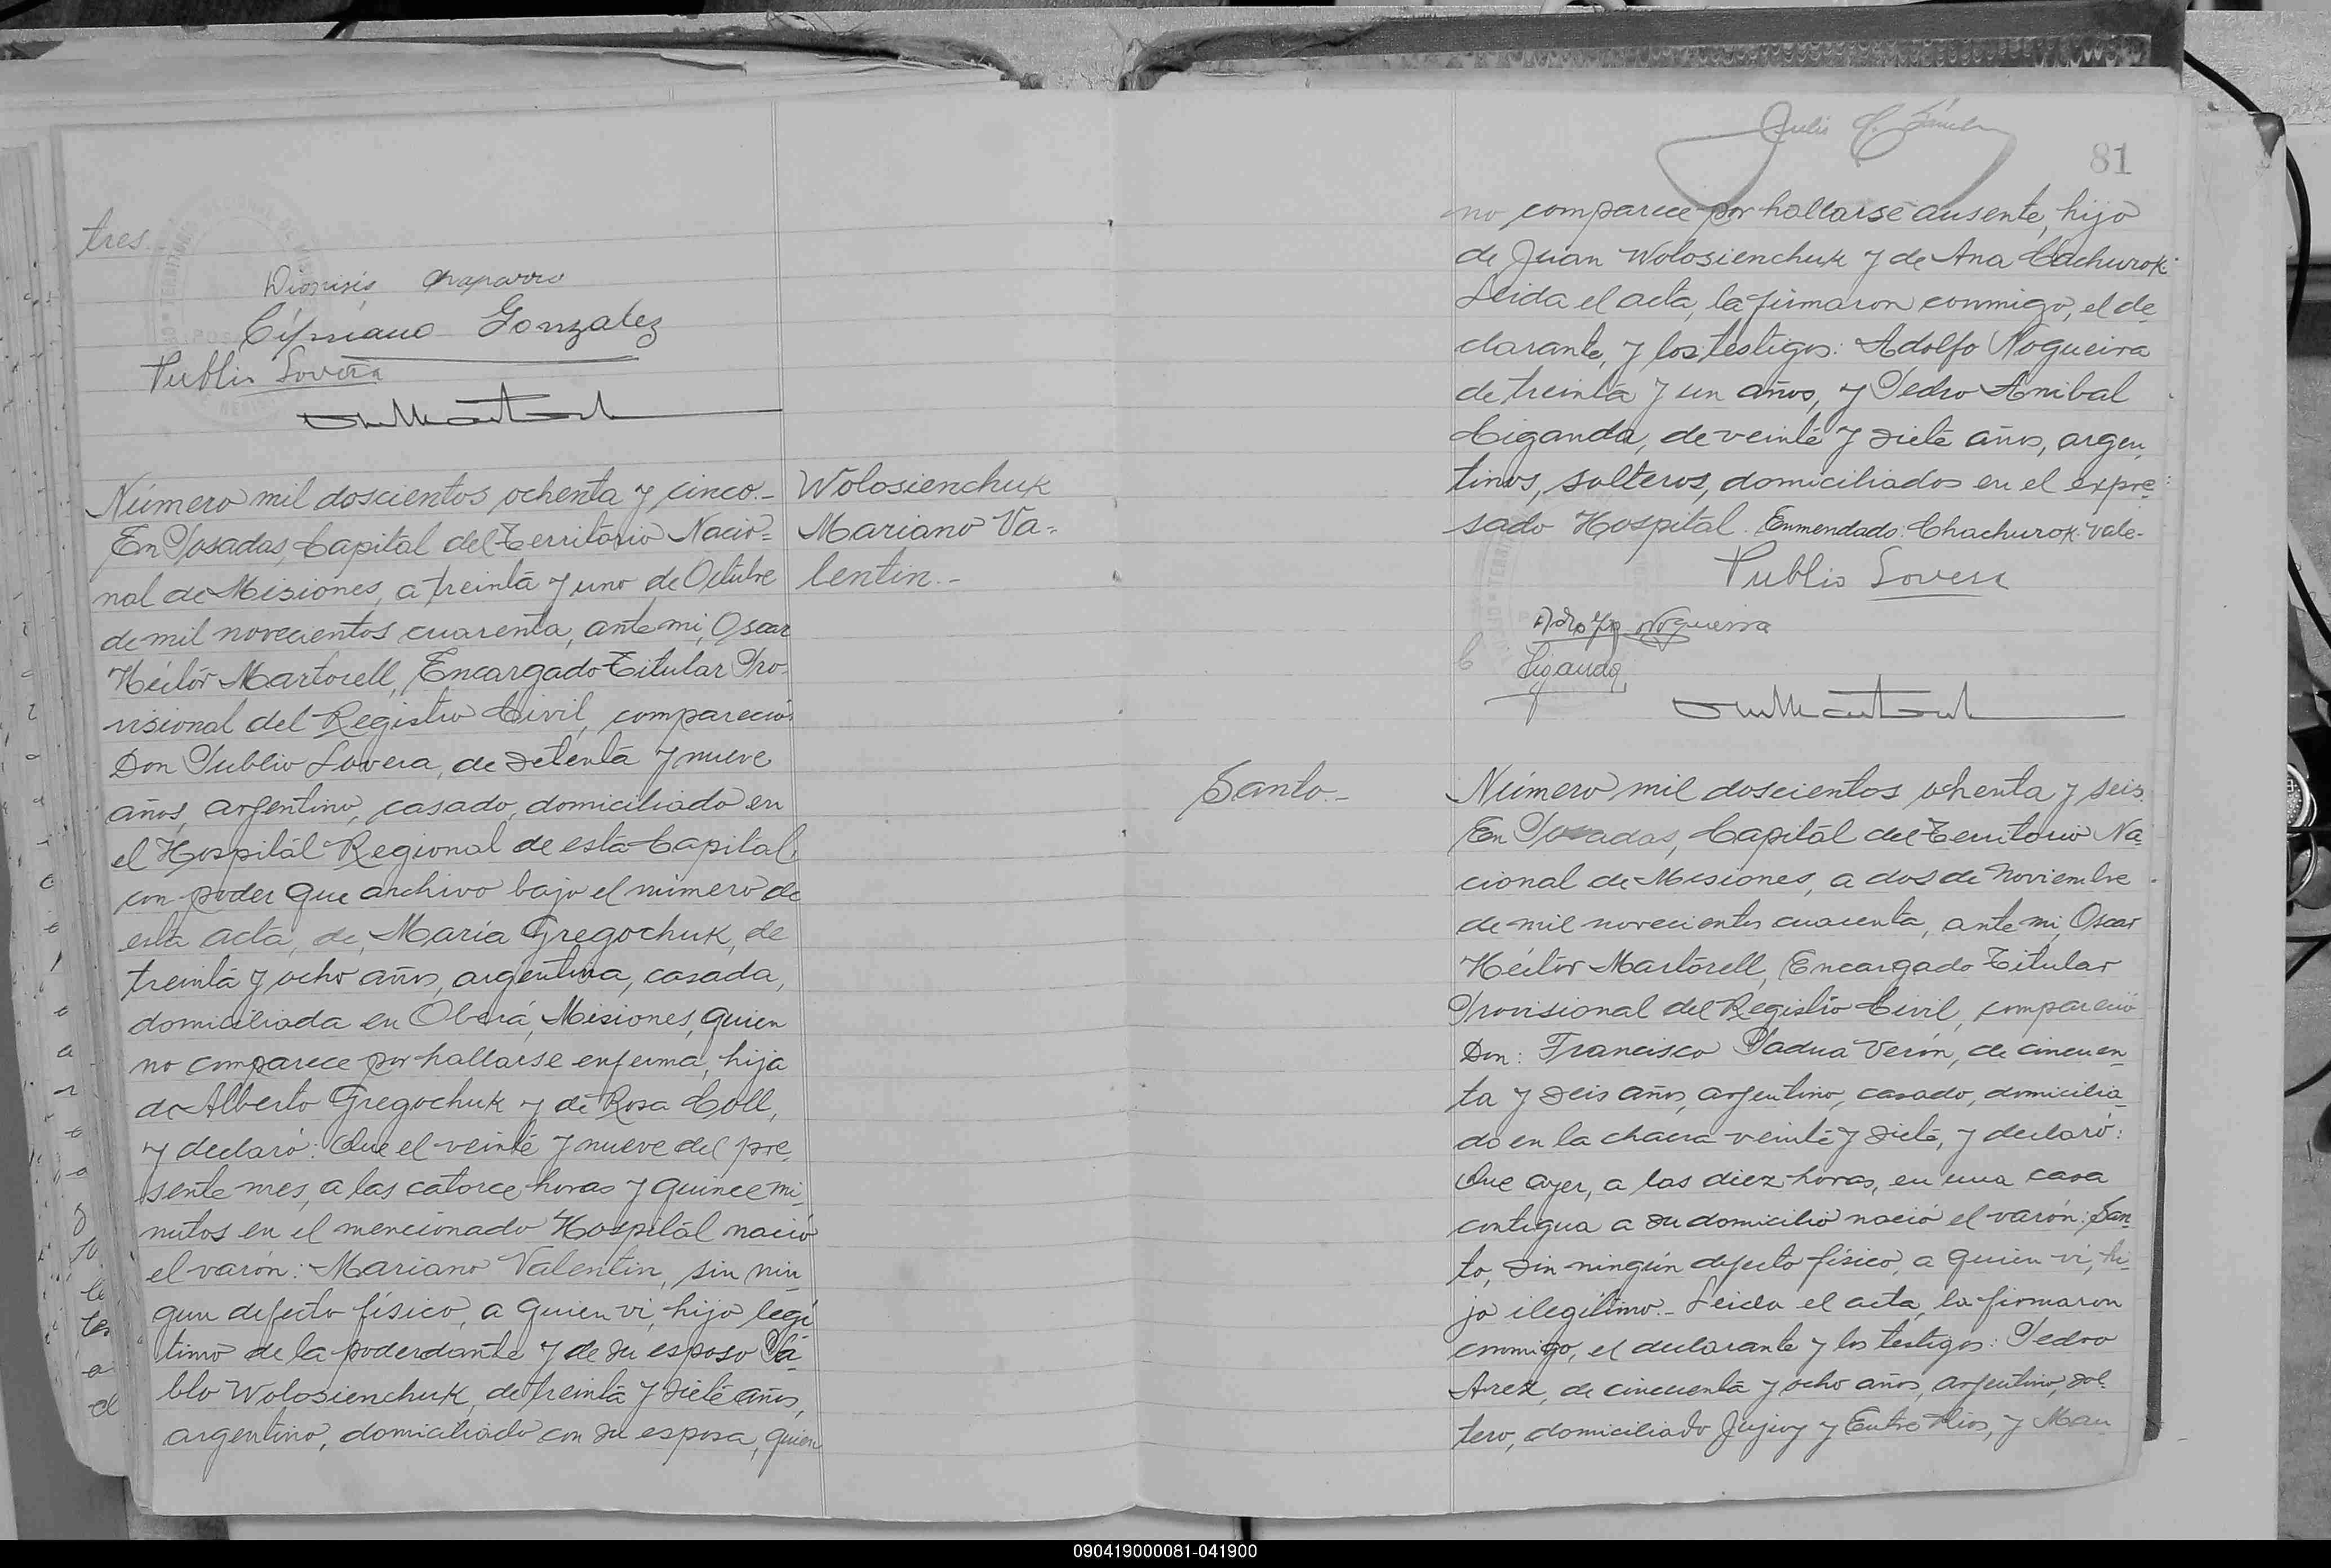 tres.
Dionisio Chaparro
Cipriano Gonzalez
Publio Lovera
Número mil doscientos ochenta y cinco.-
En Posadas, Capital del Territorio Nacio=
nal de Misiones, a treinta y uno de Octubre
de mil novecientos cuarenta, ante mi, Oscar
Héctor Martorell, Encargado Titular Pro-
visional del Registro Civil, compareció
Don Publio Lovera, de setenta y nueve
años, argentino, casado, domiciliado en
el Hospital Regional de esta Capital,
con poder que archivo bajo el número de
esta acta, de, María Gregochuk, de
treinta y ocho años, argentina, casada,
domiciliada en Oberá, Misiones, quien
no comparece por hallarse enferma, hija
de Alberto Gregochuk y de Rosa Coll,
y declaró: Que el veinte y nueve del pre-
sente mes, a las catorce horas y quince mi-
nutos en el mencionado Hospital nació
el varón: Mariano Valentin, sin nin-
gun defecto físico, a quien vi, hijo legí
timo de la poderdante y de su esposo Pa-
blo Wolosienchuk, de treinta y siete años,
argentino, domiciliado con su esposa, quien
Wolosienchuk
Mariano Va-
lentin.-
81
no comparece por hallarse ausente, hijo
de Juan Wolosienchuk y de Ana Cachurok.
Leida el acta, la firmaron conmigo, el de-
clarante, y los testigos: Adolfo Nogueira
de treinta y un años, y Pedro Anibal
Ciganda, de veinte y siete años, argen-
tinos, solteros, domiciliados en el expre-
sado Hospital. Enmendado: Chachurok: Vale-
Publio Lovera
Adolfo Nogueira
Ciganda
Santo.-
Número mil doscientos ochenta y seis.
En Posadas, Capital del Territorio Na-
cional de Misiones, a dos de Noviembre
de mil novecientos cuarenta, ante mi, Oscar
Héctor Martorell, Encargado Titular
Provisional del Registro Civil, compareció
Don: Francisco Padua Verón, de cincuen-
ta y seis años, argentino, casado, domicilia-
do en la chacra veinte y siete, y declaró:
Que ayer, a las diez horas, en una casa
contigua a su domicilio nació el varón: San-
to, sin ningún defecto físico, a quien vi, hi-
jo ilegítimo.- Leida el acta, la firmaron
conmigo, el declarante y los testigos: Pedro
Arez, de cincuenta y ocho años, argentino, sol-
tero, domiciliado Jujuy y Entre Rios, y Man
090419000081-041900